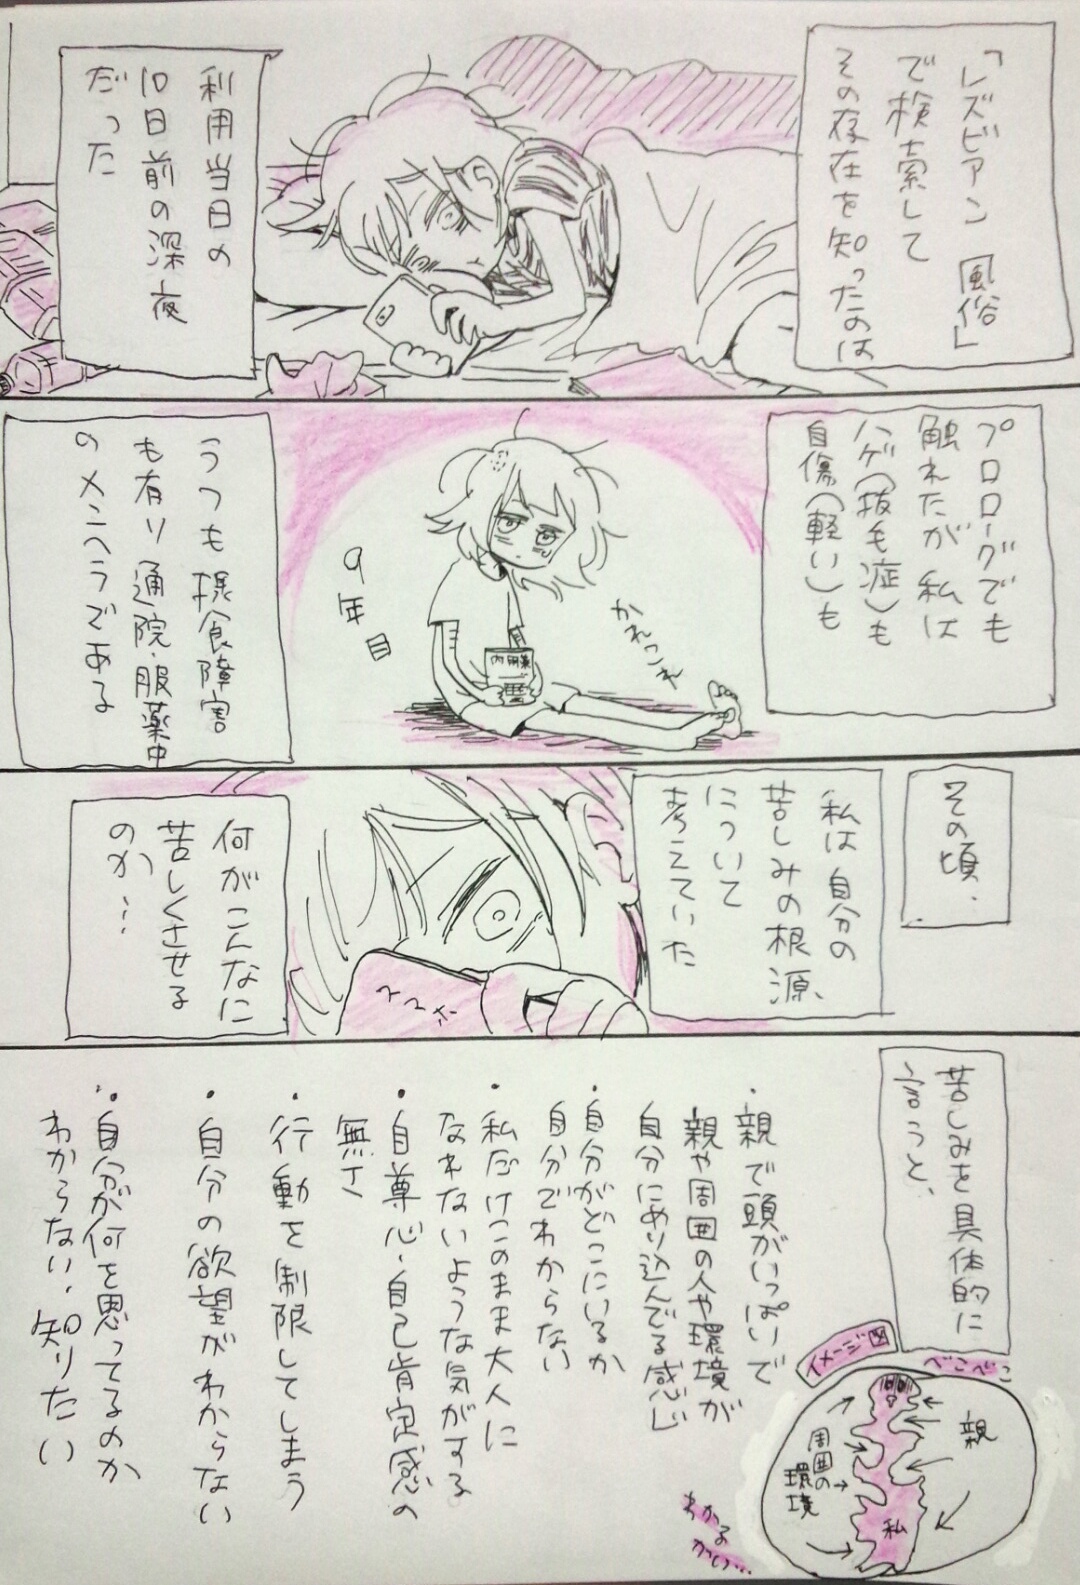 「レズビアン 風俗」
で検索して
その存在を知ったのは
利用当日の
10日前の深夜
だった
プロローグでも
触れたが 私は
ハゲ(抜毛症)も
自傷(軽い)も
かれこれ
9年目
内用薬
うつも摂食障害
も有り 通院・服薬中
のメンヘラである
その頃、
私は 自分の
苦しみの根源、
について
考えていた
スマホ
何がこんなに
苦しくさせる
のか…
苦しみを具体的に
言うと、
・親で頭がいっぱいで
親や周囲の人や環境が
自分にめり込んでる感じ
・自分がどこにいるか
自分でわからない
・私だけこのまま大人に
なれないような気がする
・自尊心・自己肯定感の
無さ
・行動を制限してしまう
・自分の欲望がわからない
・自分が何を思ってるのか
わからない・知りたい
イメージ図
べこべこ
親
周囲の
環境
私
わかる
かい…